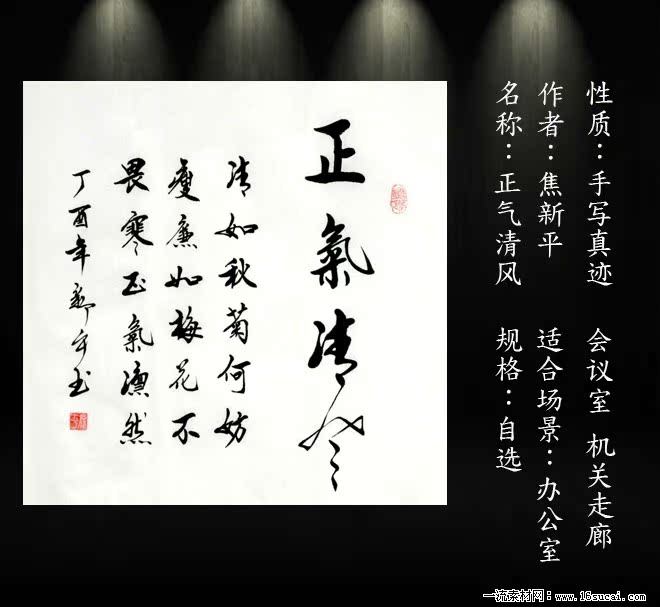 正氣清风
清如秋菊何妨
瘦廉如梅花不
畏寒正氣凛然
丁酉年新平书
名称：正气清风
作者：焦新平
性质：手写真迹
规格：自选
适合场景：办公室
会议室 机关走廊
一流素材网：www.16sucai.com